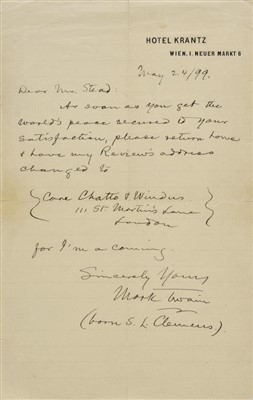 HOTEL KRANTZ
WIEN. I. NEUER MARKT 6
May 24/99.
Dear Mr. Stead:
As soon as you get the
world's peace secured to your
satisfaction, please return home
& have my Review's address
changed to
Care Chatto & Windus
111 St. Martin's Lane
London
for I'm a coming.
Sincerely Yours
Mark Twain
(born S. L. Clemens).